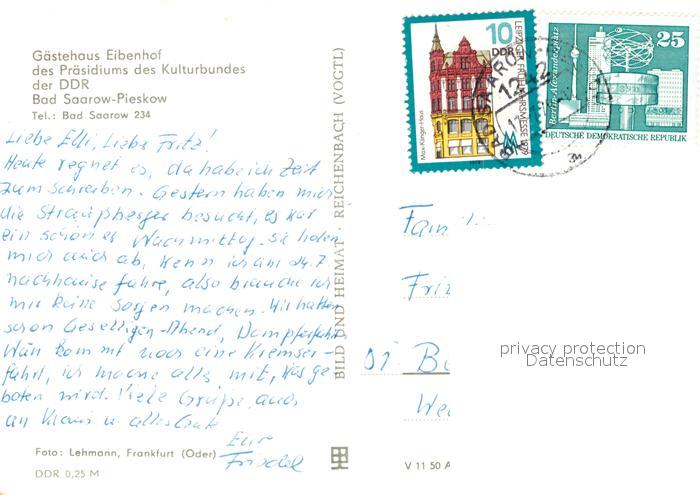 Gästehaus Eibenhof
des Präsidiums des Kulturbundes
der DDR
Bad Saarow-Pieskow
Tel.: Bad Saarow 234
Liebe Elli, Liebe Fritz!
Heute regnet es, da habe ich Zeit
zum schreiben. Gestern haben mich
die Straußberger besucht, es war
ein schöner Nachmittag. Sie holen
mich auch ab, wenn ich am 24.7
nachhause fahre, also brauche ich
mir keine Sorgen machen. Wir hatten
schon Geselligen-Abend, Dampferfahrt
Nun kommt noch eine Kremser-
fahrt, ich mache alles mit, was ge
boten wird. Viele Grüße, auch
an Klaus u. alles Gute
Eure
Friedel
Foto: Lehmann, Frankfurt (Oder)
DDR 0,25 M
BILD UND HEIMAT REICHENBACH (VOGTL)
V 11 50 A
10
DDR
LEIPZIGER FRÜHJAHRSMESSE
Max-Klinger-Haus
25
Berlin-Alexanderplatz
DEUTSCHE DEMOKRATISCHE REPUBLIK
BAD SAAROW
1242
Fam
Frit
B
We
privacy protection
Datenschutz